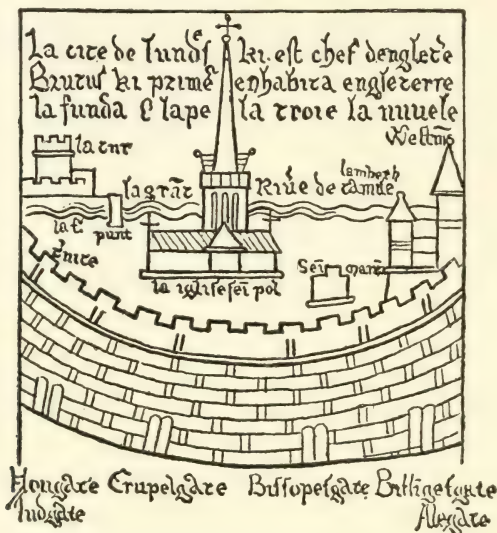 La cite de lund's ki. est chef denglet'e
Brutus ki prime' enhabita engleterre
la funda & lape la troie la nuuele
Westm'
la tur
lambeth
la gra't Riu'e de tamise
la t'inite
punt
Sei' mar
la iglise sei' pol
Hongate Crupelgate Bissopesgate Billigesgate
ludgate Alegate